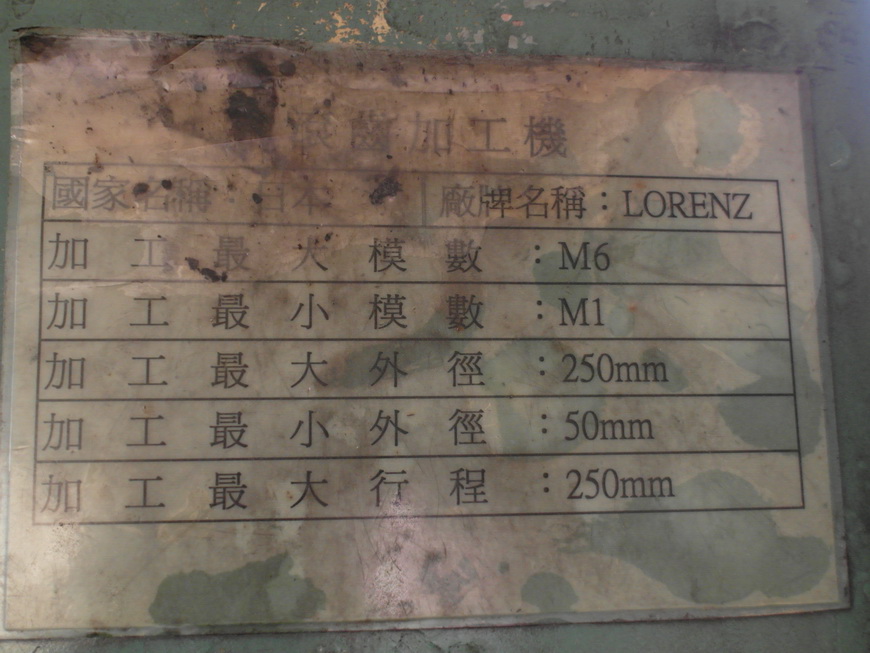 齒加工機
國家名稱：日本 廠牌名稱：LORENZ
加工最大模數：M6
加工最小模數：M1
加工最大外徑：250mm
加工最小外徑：50mm
加工最大行程：250mm